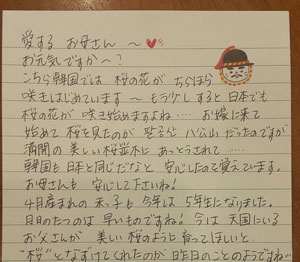 愛する お母さん 〜
お元気ですか〜?
こちら韓国では 桜の花が ちらほら
咲きはじめています 〜 もう少しすると 日本でも
桜の花が 咲き始めますよね… お嫁に来て
始めて 桜を見たのが 八公山 だったのですが
満開の 美しい桜並木に あっとうされて ……
韓国も 日本と同じだなと 安心したの 覚えています。
お母さんも 安心して下さいね!
4月産まれの 末っ子も 今年は 5年生になりました。
月日のたつのは 早いものですね! 今は 天国にいる
お父さんが 美しい 桜のように 育ってほしいと
"桜"と なずけてくれたのが 昨日のことのようですね…